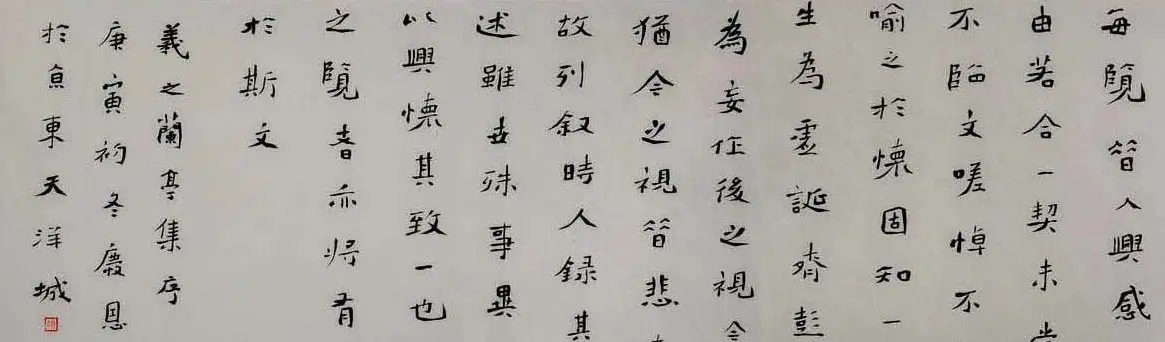 每覽昔人興感
由若合一契未嘗
不臨文嗟悼不
喻之於懷固知一
生為虛誕齊彭
為妄作後之視今
猶今之視昔悲
故列叙時人録其
述雖世殊事異
以興懷其致一也
之覽者亦將有
於斯文
羲之蘭亭集序
庚寅初冬慶恩
於京東天洋城